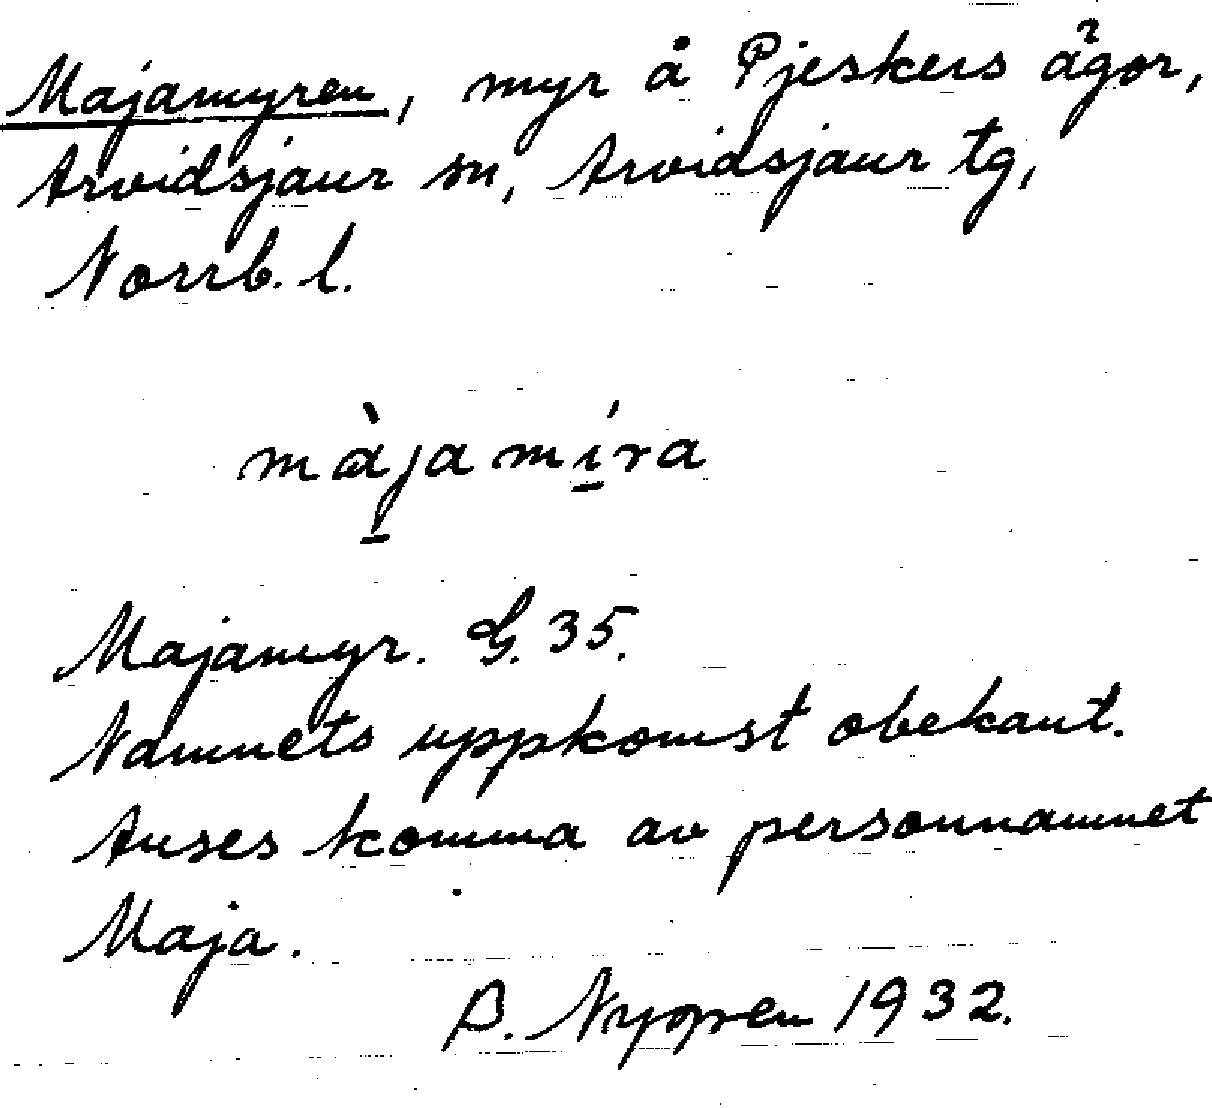 Majamyren, myr å Pjeskers ägor,
Arvidsjaur sn, Arvidsjaur tg,
Norrb. l.
màjamíra
Majamyr. G. 35.
Namnets uppkomst obekant.
Anses komma av personnamnet
Maja.
B. Nygren 1932.